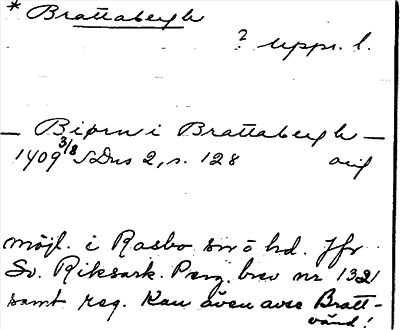 * Brattabergh
? Upps. l.
— Biørn i Brattabergh —
1409 3/8 SDns 2, s. 128 orig
möjl. i Rasbo sn o hd. Jfr
Sv. Riksark. Perg. brev nr 1321
samt reg. Kan även avse Bratt-
vård!